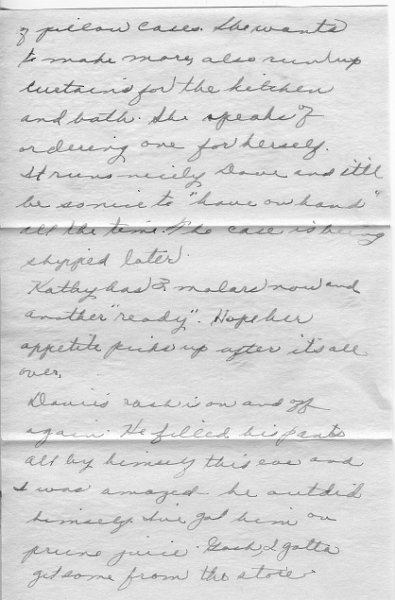 of pillow cases. She wants
to make more, also run up
curtains for the kitchen
and bath. She speaks of
ordering one for herself.
It runs nicely Dave and it'll
be so nice to "have on hand"
all the time. The case is being
shipped later.
Kathy has 3 molars now and
another "ready". Hope her
appetite picks up after it's all
over.
Davie's rash is on and off
again. He filled his pants
all by himself this eve and
I was amazed. he outdid
himself. I've got him on
prune juice. Gosh, I gotta
get some from the store